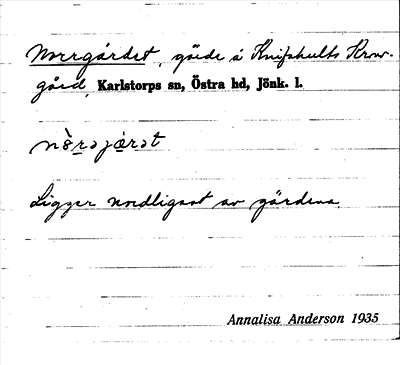 Norrgärdet, gärde å Knifshults Krono-
gård, Karlstorps sn, Östra hd, Jönk. l.
Ligger nordligast av gärdena
Annalisa Anderson 1935